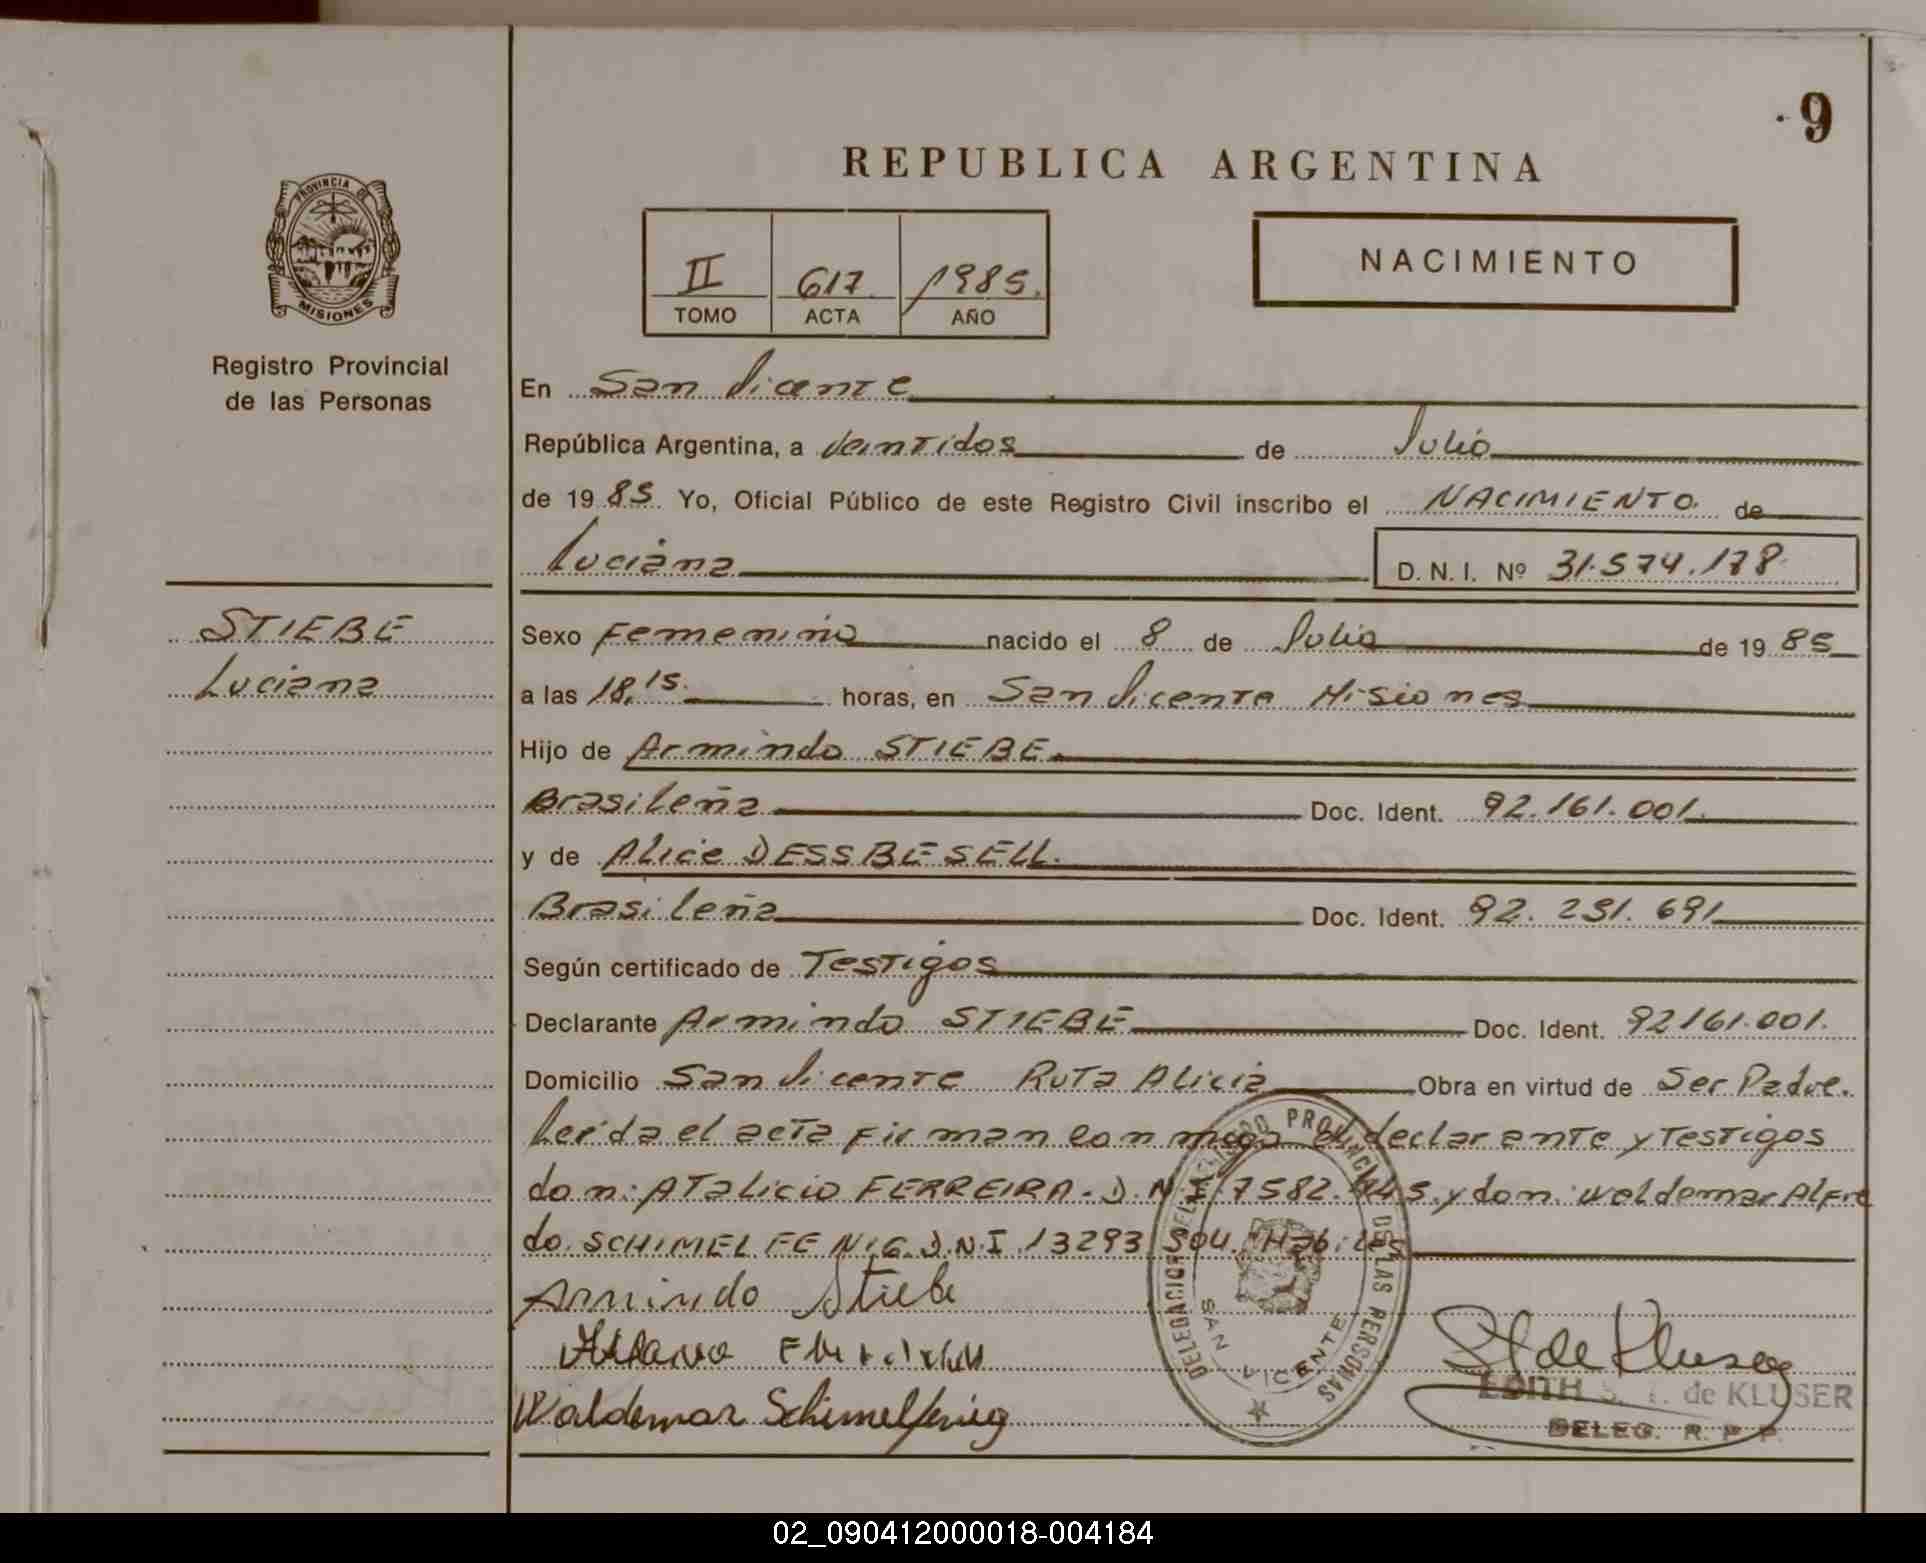 9
REPUBLICA ARGENTINA
PROVINCIA DE
MISIONES
II 617. 1985.
TOMO ACTA AÑO
NACIMIENTO
Registro Provincial
de las Personas
En San Vicente
República Argentina, a Veintidos de Julio
de 1985. Yo, Oficial Público de este Registro Civil inscribo el NACIMIENTO. de
Luciana D. N. I. Nº 31.574.178.
STIEBE
Luciana
Sexo Femenino nacido el 8 de Julio de 1985
a las 18,15. horas, en San Vicente Misiones
Hijo de Armindo STIEBE.
Brasileña Doc. Ident. 92.161.001.
y de Alice DESSBESELL.
Brasileña Doc. Ident. 92. 251. 691
Según certificado de Testigos
Declarante Armindo STIEBE Doc. Ident. 92161.001.
Domicilio San Vicente Ruta Alicia Obra en virtud de Ser Padre.
Leida el acta firman conmigo el declarante y Testigos
don: ATalicio FERREIRA. D.N.I 7582. y don: Waldemar Alfre
do. SCHIMELFENIG. D.N.I. 13293 Habiles
Armindo Stiebe
Waldemar Schimelfenig
DELEGACION DEL REGISTRO PROVINCIAL DE LAS PERSONAS
SAN VICENTE
de Kluser
EDITH S. T. de KLUSER
DELEG. R. P. P.
02_090412000018-004184